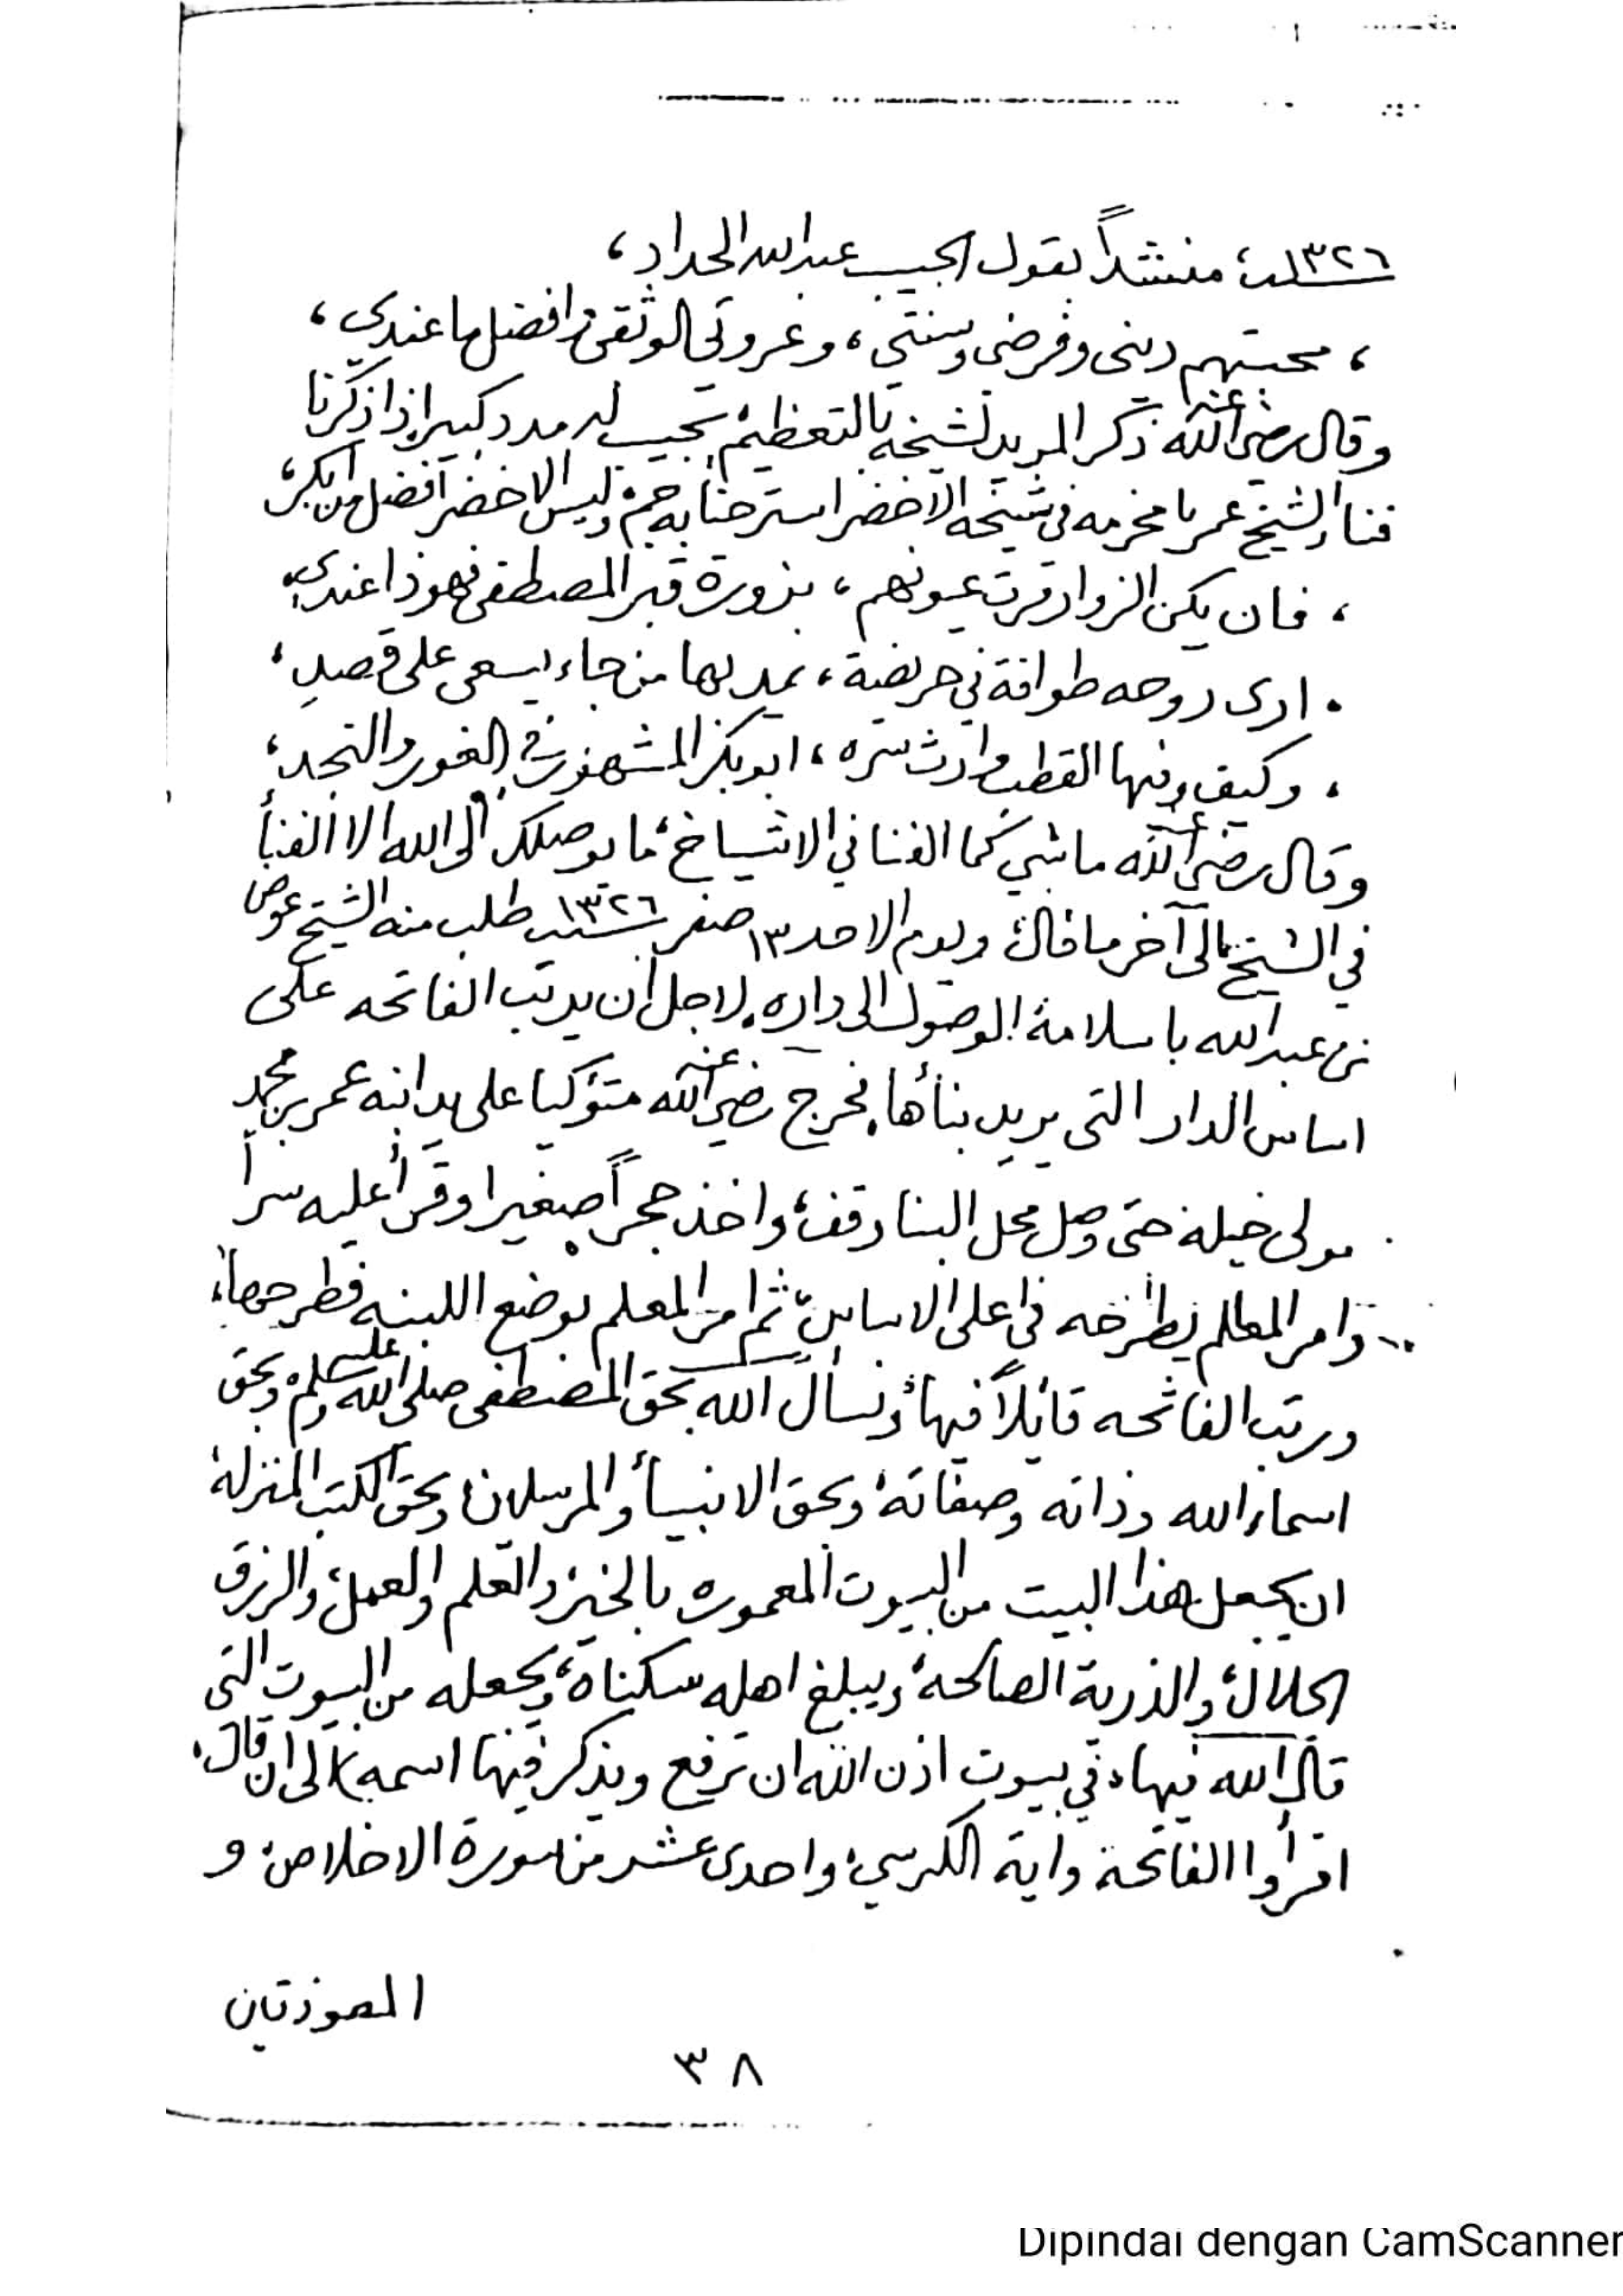 ١٣٢٦ سنة، منشداً بقول الحبيب عبدالله الحداد،
، محبتهم ديني وفرضي وسنتي، وعروتي الوثقى وافضل ما عندي،
وقال رضي الله عنه ذكر المريد لشيخه بالتعظيم، تجيب له مدد كبير، اذا ذكرنا
فنا الشيخ عمر بامخرمه في شيخه الاخضر استرحنا به جم، وليس الاخضر افضل من ابكر،
، فان يكن الزوار قرت عيونهم، بزورة قبر المصطفى فهو ذا عندي،
، ارى روحه طوافة في حريضة، يمد بها من جاء يسعى على قصدِ،
، وكيف وفيها القطب وارث سره، ابوبكر المشهور في الغور والنجد،
وقال رضي الله عنه ما شي كما الفنا في الاشياخ، ما يوصلك الى الله الا الفنأ
في الشيخ، الى آخر ما قال، ويوم الاحد ١٣ صفر سنة ١٣٢٦ طلب منه الشيخ عوض
بن عبدالله باسلامة الوصول الى داره، لاجل أن يرتب الفاتحه على
اساس الدار التي يريد بنأها، فخرج رضي الله عنه متؤكيا على يد ابنه عمر بن محمد
مولى خيلة حتى وصل محل البنا وقف، واخذ حجراً صغيرا وقرأ عليه سراً
وامر المعلم يطرحه في اعلى الاساس، ثم امر المعلم بوضع اللبنه فطرحها،
ورتب الفاتحه قائلاً فيها، ونسأل الله بحق المصطفى صلى الله عليه وسلم، وبحق
اسماء الله وذاته وصفاته، وبحق الانبيأ والمرسلين، وبحق الكتب المنزلة
ان يجعل هذا البيت من البيوت المعموره بالخير، والعلم والعمل، والرزق
الحلال، والذرية الصالحة، ويبلغ اهله سكناه، ويجعله من البيوت التي
قال الله فيها، في بيوت اذن الله ان ترفع ويذكر فيها اسمه) الى ان قال،
اقرأوا الفاتحة واية الكرسي، واحدى عشر من سورة الاخلاص، و
المعوذتين
٣٨
Dipindai dengan CamScanner